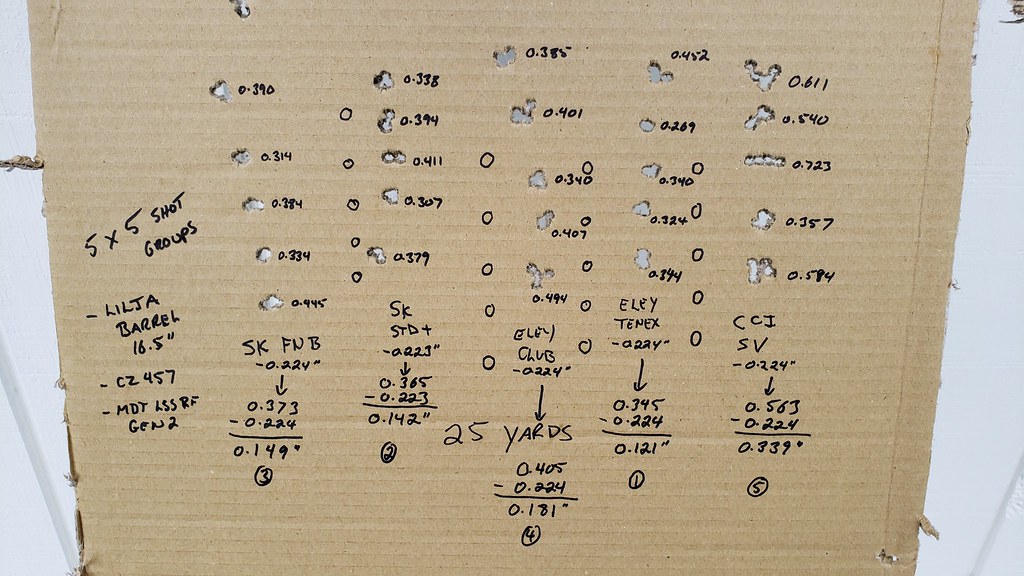 0.390
0.314
0.384
0.334
0.445
SK FNB
-0.224"
0.373
-0.224
0.149"
3
0.338
0.394
0.411
0.307
0.379
SK
STD+
-0.223"
0.365
-0.223
0.142"
2
0.385
0.401
0.340
0.407
0.494
ELEY
CLUB
-0.224"
25 YARDS
0.405
- 0.224
0.181"
4
0.452
0.269
0.340
0.324
0.344
ELEY
TENEX
-0.224"
0.345
-0.224
0.121"
1
0.611
0.540
0.723
0.357
0.584
CCI
SV
-0.224"
0.563
-0.224
0.339"
5
5 x 5 SHOT
GROUPS
- LILJA
BARREL
16.5"
- CZ 457
- MDT LSSRF
GEN 2